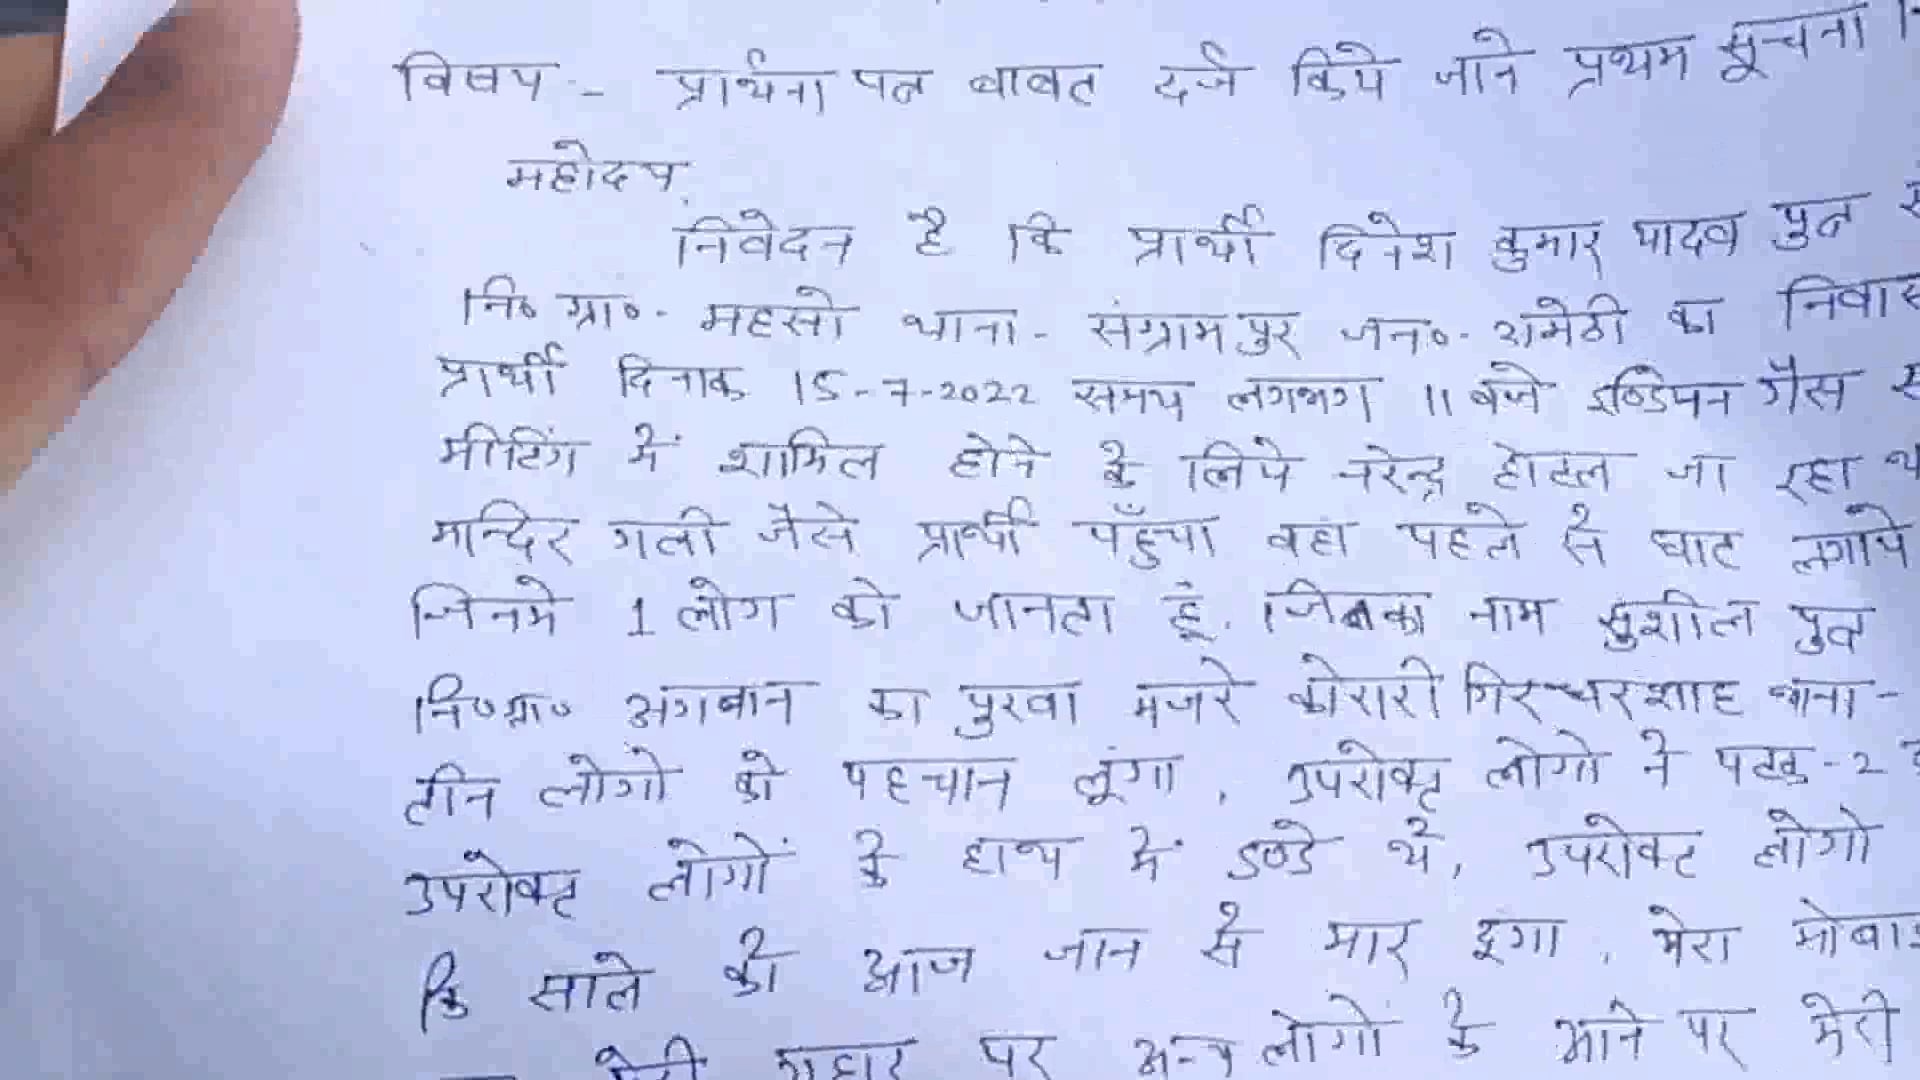 विषय - प्रार्थना पत्र बाबत दर्ज किये जाने प्रथम सूचना
महोदय,
निवेदन है कि प्रार्थी दिनेश कुमार यादव पुत्र
नि० ग्रा०- महसो थाना - संग्रामपुर जन०- अमेठी का निवास
प्रार्थी दिनाक 15-7-2022 समय लगभग 11 बजे इण्डियन गैस
मीटिंग में शामिल होने के लिये नरेन्द्र होटल जा रहा
मन्दिर गली जैसे प्रार्थी पहुँचा वहा पहले से घात लगाये
जिनमे 1 लोग को जानता हूं. जिनका नाम सुशील पुत्र
नि०ग्रा० अंगबान का पुरवा मजरे कोरारी गिरधरशाह थाना -
तीन लोगो को पहचान लूंगा, उपरोक्त लोगो ने पटक-2
उपरोक्त लोगों के हाथ में डण्डे थे, उपरोक्त लोगो
कि साले को आज जान से मार दूगा, मेरा मोबाइ
गुहार पर अन्य लोगो के आने पर मेरी